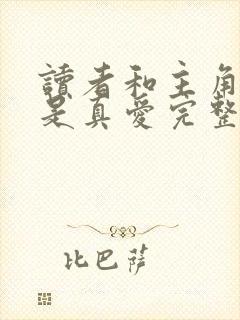 讀者和主角
是真愛完整
比巴薩